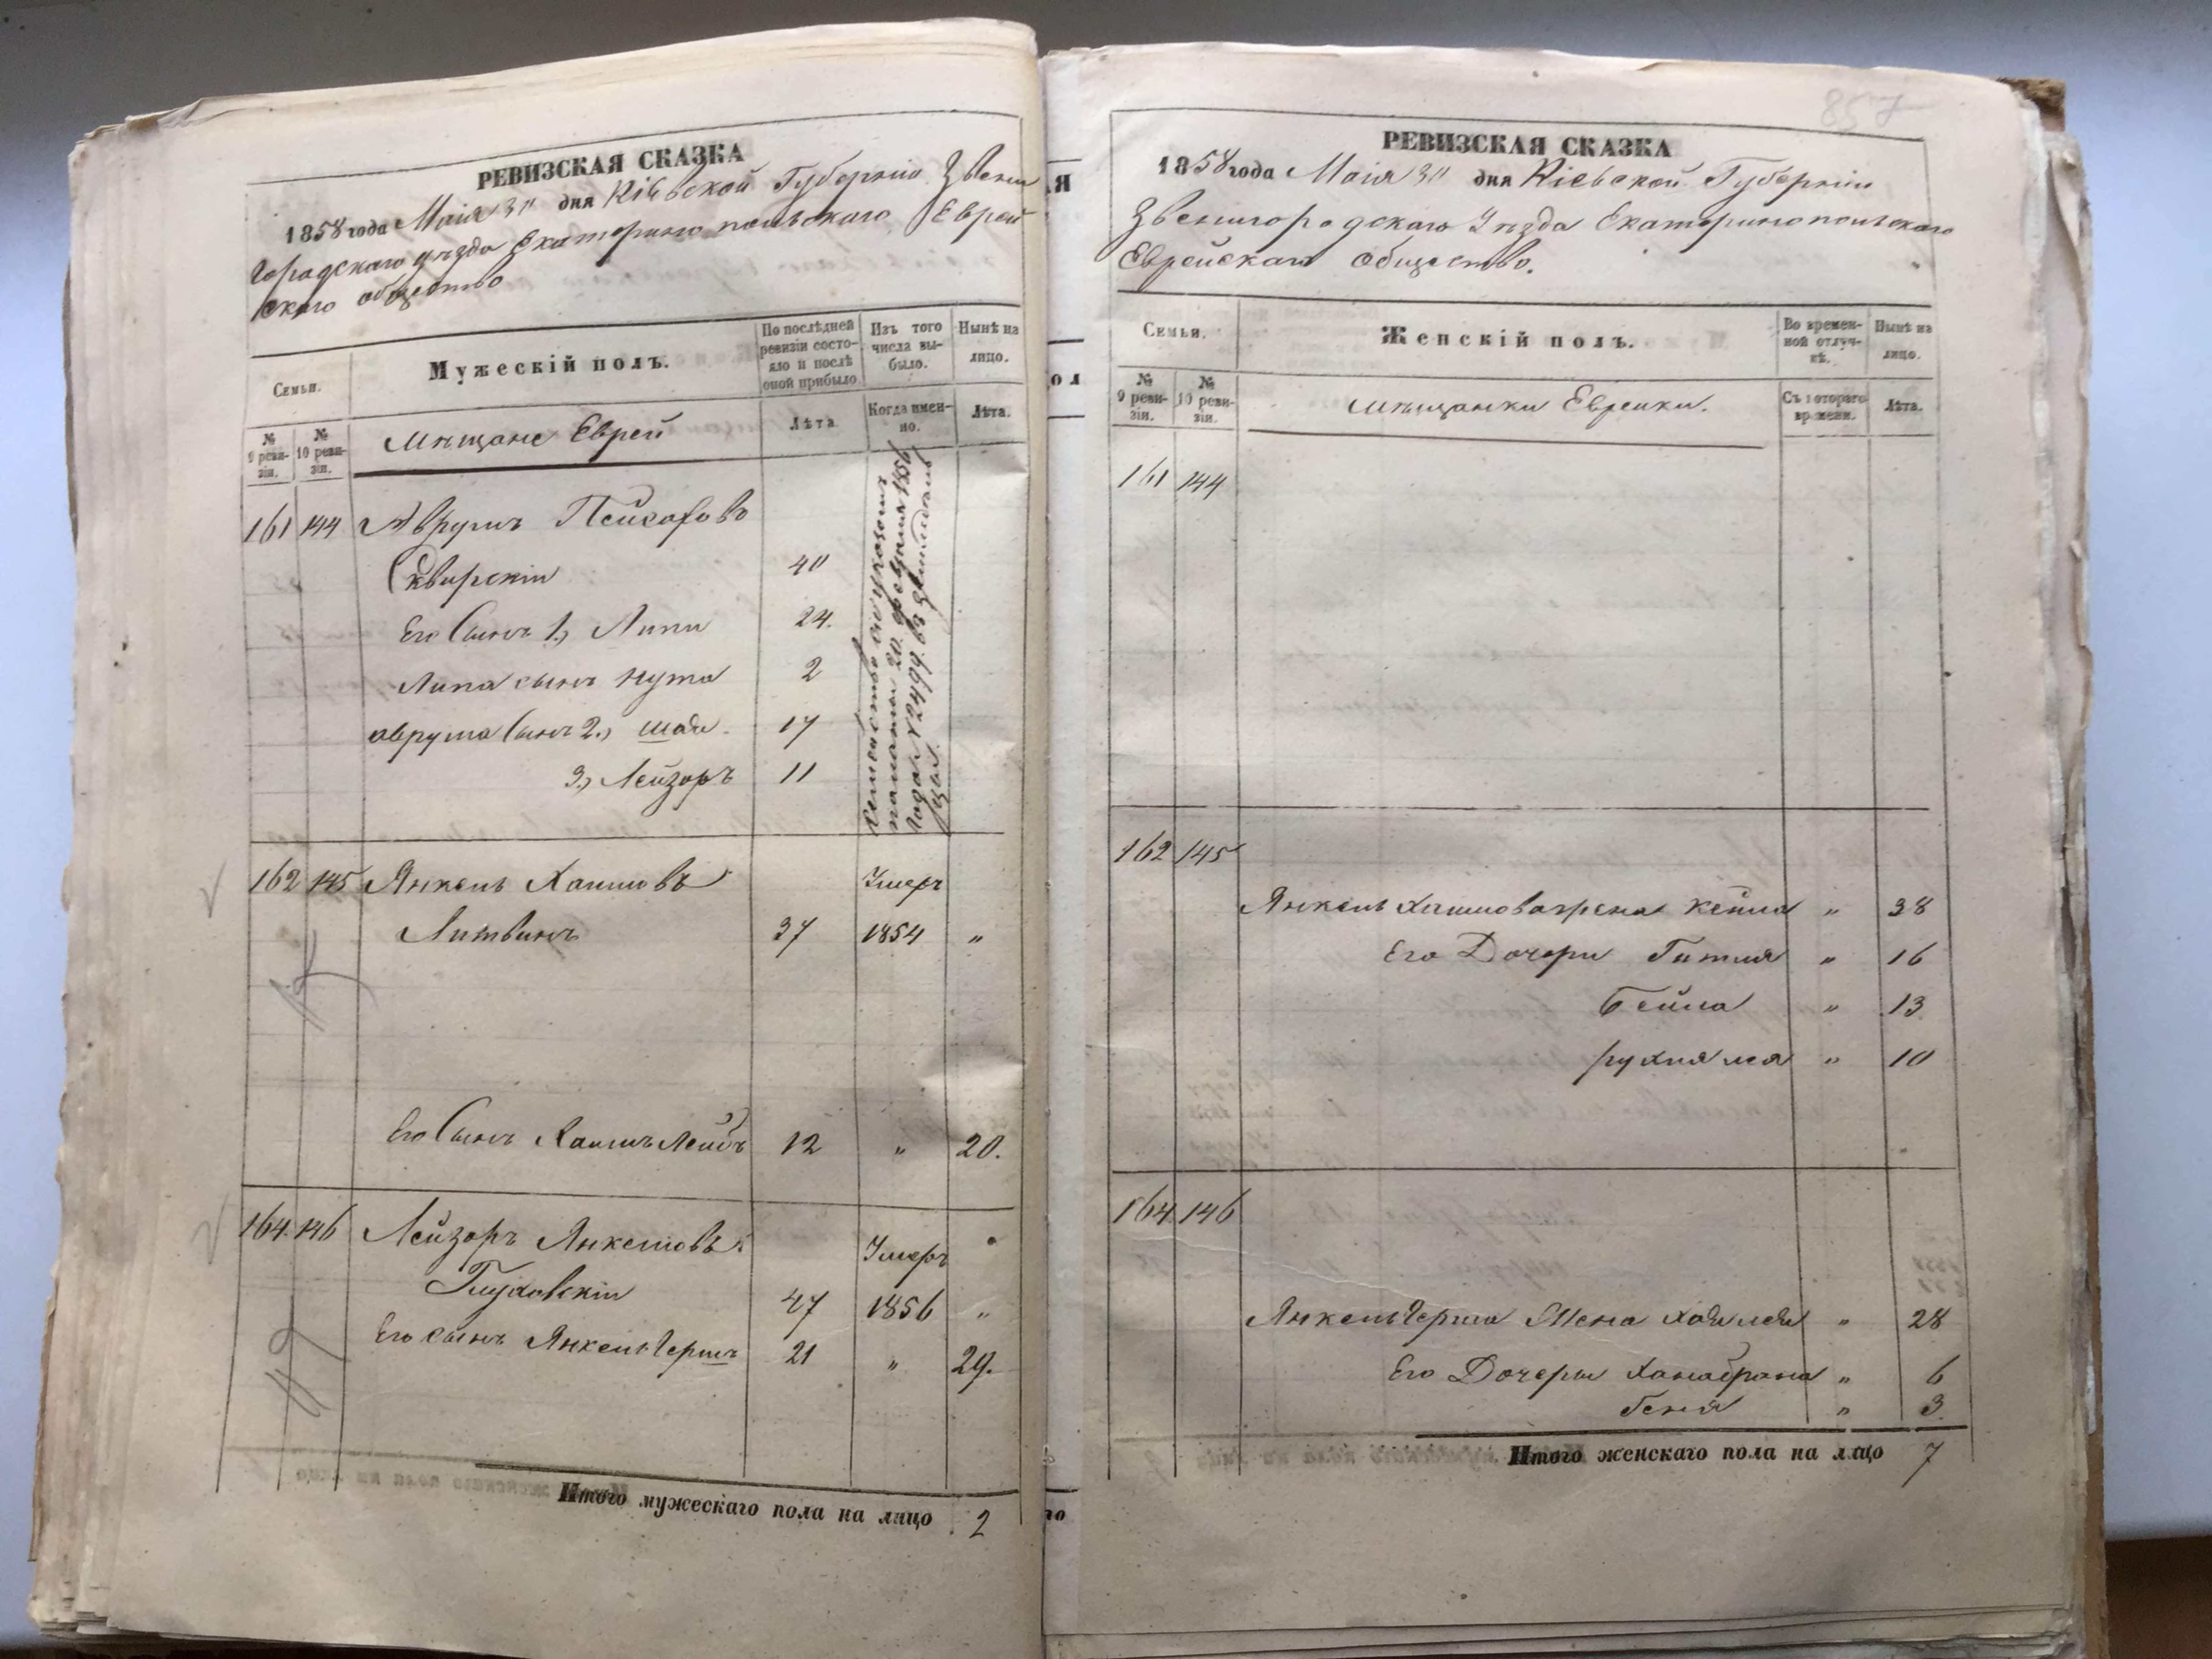 РЕВИЗСКАЯ СКАЗКА
1858 года Маія 30 дня Кіевской Губерніи Звени
городскаго уѣзда Екатеринопольскаго Еврей
скаго общество
Семьи.
Мужескій полъ.
По послѣдней ревизіи состо-яло и послѣ оной прибыло
Изъ того числа вы-было.
Нынѣ на лицо.
№ 9 реви-зіи.
№ 10 реви-зіи.
Мѣщане Еврей
Лѣта
Когда имен-но.
Лѣта.
161 144 Аврумъ Пейсаховъ
Сквирскій 40
Его Сынъ 1.) Липа 24.
Липа сынъ Нута 2
аврума Сынъ 2.) Шая 17
3.) Лейзоръ 11
Семейство по указомъ
палаты 20 февраля 1856
года № 2499. въ
162 145 Янкель Хаимовъ Умеръ
Литвинъ 37 1854 "
15
Его Сынъ Хаимъ Лейбъ 12 " 20.
164. 146 Лейзоръ Янкелевъ Умеръ
Глуховскій 47 1856 "
Его сынъ Янкель Гершъ 21 " 29.
Итого мужескаго пола на лицо 2
857
РЕВИЗСКАЯ СКАЗКА
1858 года Маія 30 дня Кіевской Губерніи
Звенигородскаго Уѣзда Екатеринопольскаго
Еврейскаго общество.
Семьи.
Женскій полъ.
Во времен-ной отлуч-кѣ.
Нынѣ на лицо.
№ 9 реви-зіи.
№ 10 реви-зіи.
Мѣщанки Еврейки.
Съ котораго времени.
Лѣта.
161 144
162 145
Янкель Хаимова жена Кейла " 38
Его Дочери Гитля " 16
Бейла " 13
рухля лея " 10
164 146
Янкель Герша Жена Хая лея " 28
Его Дочеры Ханабрана " 6
Беня " 3.
Итого женскаго пола на лицо 7